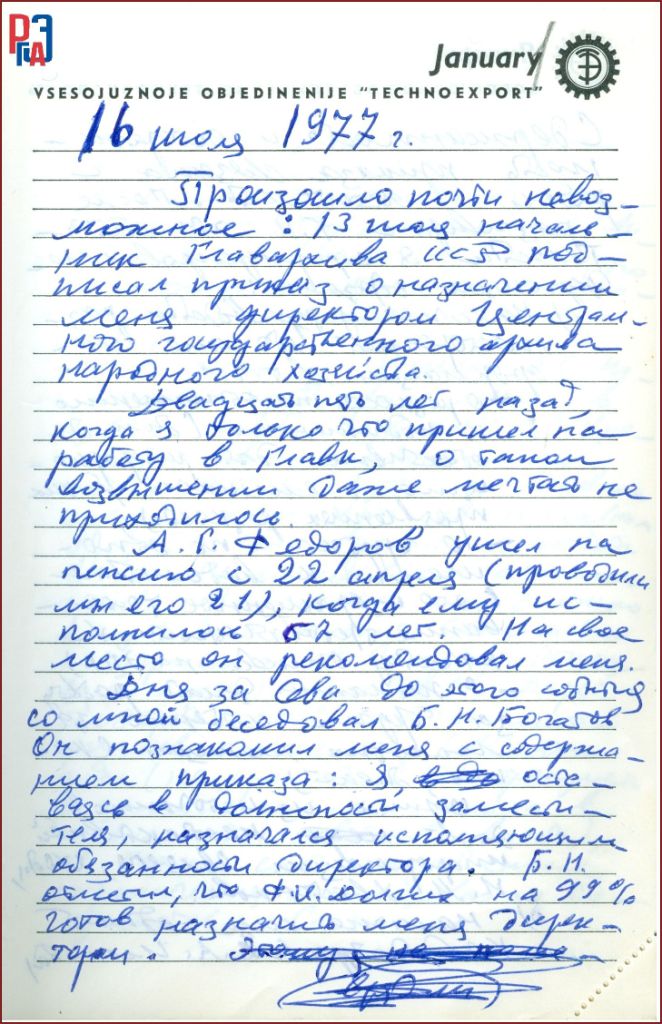 РГАЭ
January
VSESOJUZNOJE OBJEDINENIJE "TECHNOEXPORT"
16 июля 1977 г.
Произошло почти невоз-
можное: 13 июля началь-
ник Главархива СССР под-
писал приказ о назначении
меня директором Централь-
ного государственного архива
народного хозяйства.
Двадцать пять лет назад,
когда я только что пришел на
работу в Главк, о таком
возвышении даже мечтать не
приходилось.
А. Г. Федоров ушел на
пенсию с 22 апреля (проводили
мы его 21), когда ему ис-
полнилось 67 лет. На свое
место он рекомендовал меня.
Дня за два до этого события
со мной беседовал Б. Н. Богатов
Он познакомил меня с содержа-
нием приказа: я, оста-
ваясь в должности замести-
теля, назначался исполняющим
обязанности директора. Б. Н.
отметил, что Ф. И. Долгих на 99%
готов назначить меня дирек-
тором.